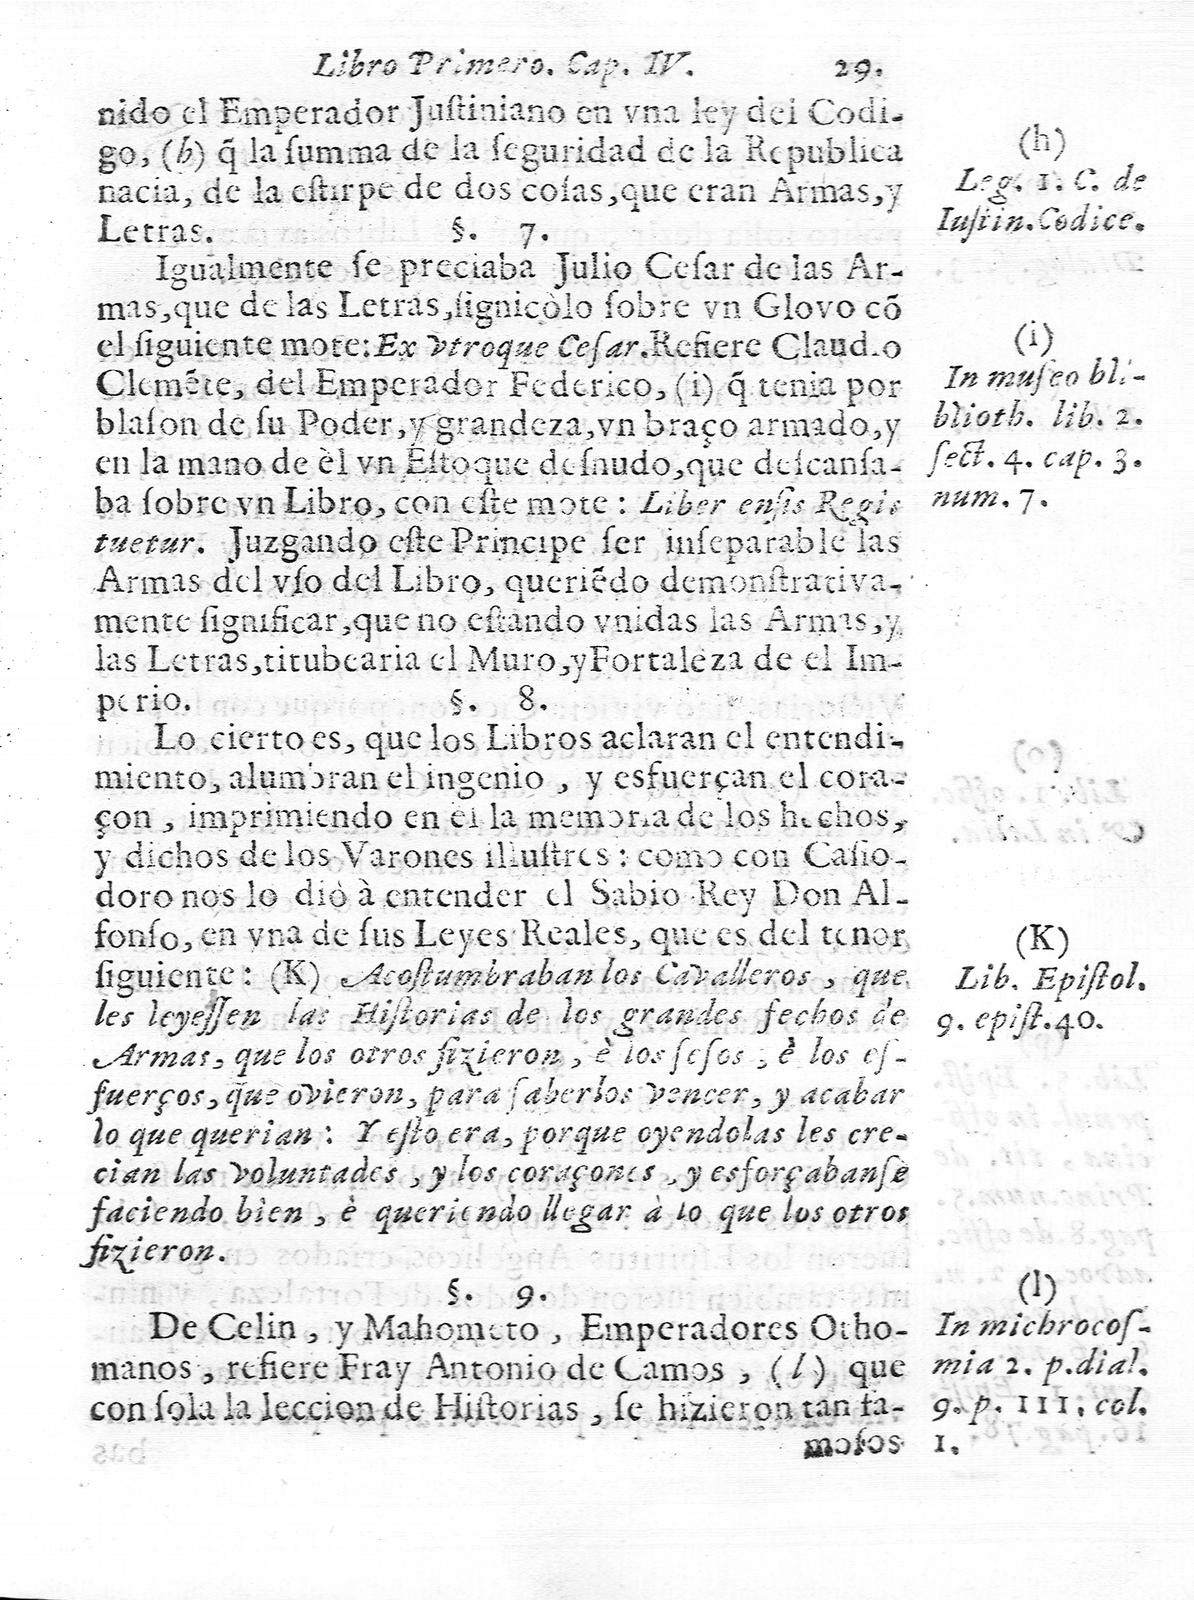 Libro Primero. Cap. IV. 29.
nido el Emperador Juſtiniano en vna ley del Codi-
go, (h) q̃ la ſumma de la ſeguridad de la Republica
nacia, de la eſtirpe de dos coſas, que eran Armas, y
Letras. §. 7.
Igualmente ſe preciaba Julio Ceſar de las Ar-
mas, que de las Letras, ſignicòlo ſobre vn Glovo cõ
el ſiguiente mote: Ex vtroque Ceſar. Refiere Claudio
Clemẽte, del Emperador Federico, (i) q̃ tenia por
blaſon de ſu Poder, y grandeza, vn braço armado, y
en la mano de èl vn Eſtoque deſnudo, que deſcanſa-
ba ſobre vn Libro, con eſte mote: Liber enſis Regis
tuetur. Juzgando eſte Principe ſer inſeparable las
Armas del vſo del Libro, queriẽdo demonſtrativa-
mente ſignificar, que no eſtando vnidas las Armas, y
las Letras, titubearia el Muro, y Fortaleza de el Im-
perio. §. 8.
Lo cierto es, que los Libros aclaran el entendi-
miento, alumbran el ingenio, y esfuerçan el cora-
çon, imprimiendo en èl la memoria de los hechos,
y dichos de los Varones illuſtres: como con Caſio-
doro nos lo diò à entender el Sabio Rey Don Al-
fonſo, en vna de ſus Leyes Reales, que es del tenor
ſiguiente: (K) Acoſtumbraban los Cavalleros, que
les leyeſſen las Hiſtorias de los grandes fechos de
Armas, que los otros fizieron, è los ſeſos, è los eſ-
fuerços, que ovieron, para ſaberlos vencer, y acabar
lo que querian: Y eſto era, porque oyendolas les cre-
cian las voluntades, y los coraçones, y esforçabanſe
faciendo bien, è queriendo llegar à lo que los otros
fizieron.
§. 9.
De Celin, y Mahometo, Emperadores Otho-
manos, refiere Fray Antonio de Camos, (l) que
con ſola la leccion de Hiſtorias, ſe hizieron tan fa-
moſos
(h)
Leg. 1. C. de
Iuſtin. Codice.
(i)
In muſeo bli-
blioth. lib. 2.
ſect. 4. cap. 3.
num. 7.
(K)
Lib. Epiſtol.
9. epiſt. 40.
(l)
In michrocoſ-
mia 2. p. dial.
9. p. 111. col.
1.